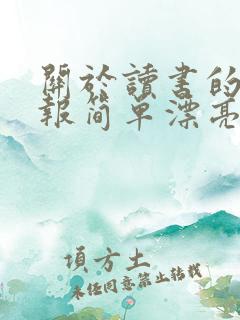 關於讀書的
報简单漂亮
頃方土
未经同意禁止转载